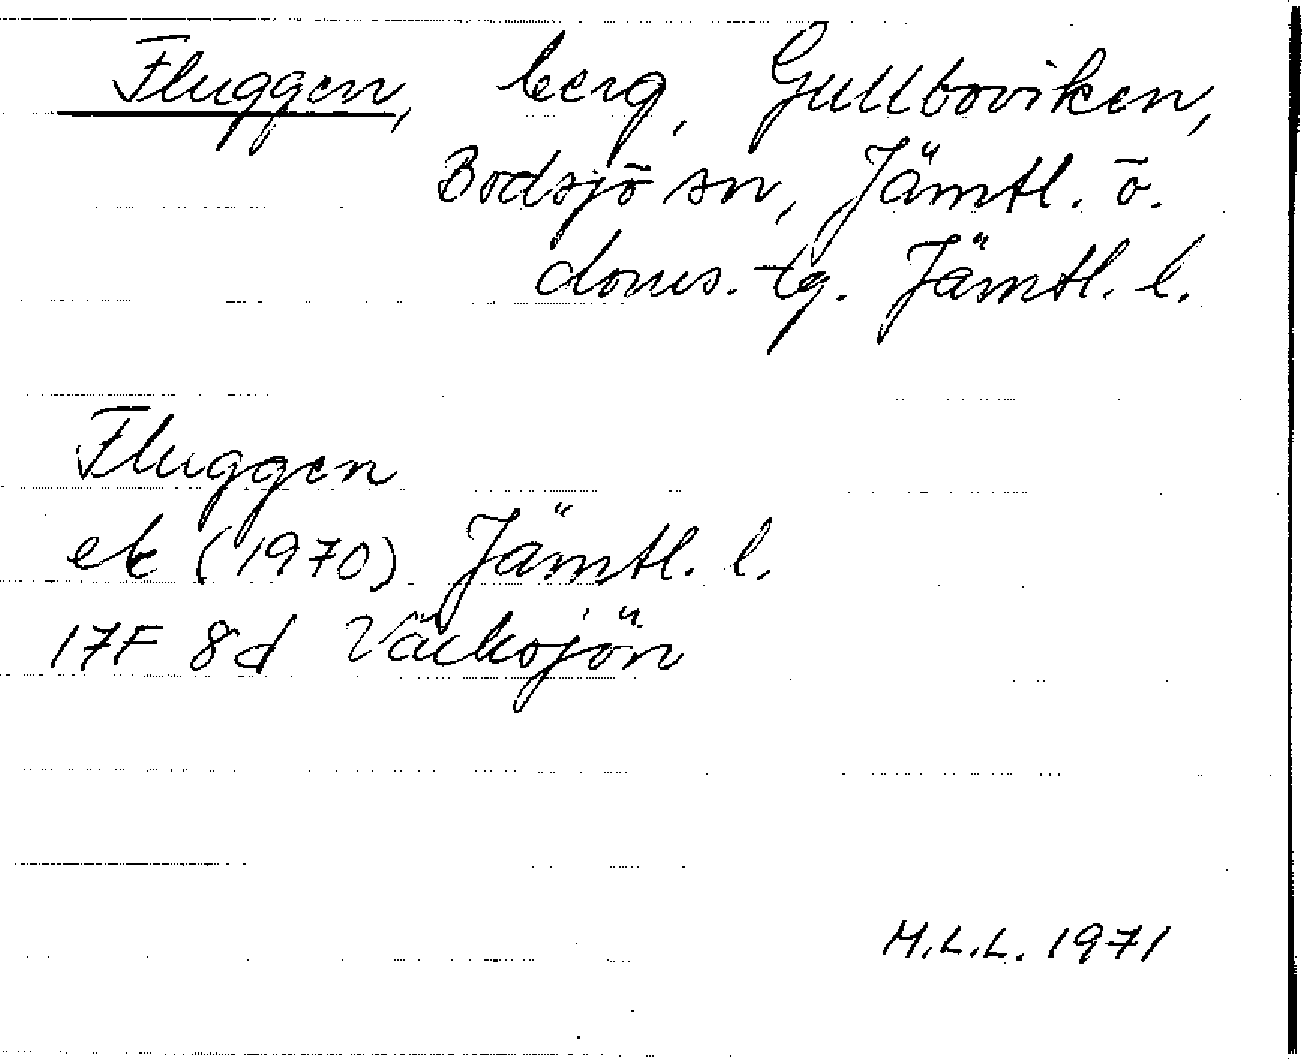 Fluggen, berg, Gullboviken,
Bodsjö sn, Jämtl. ö.
doms. tg. Jämtl. l.
Fluggen
ek (1970) Jämtl. l.
17F 8d Väcksjön
M.L.L. 1971